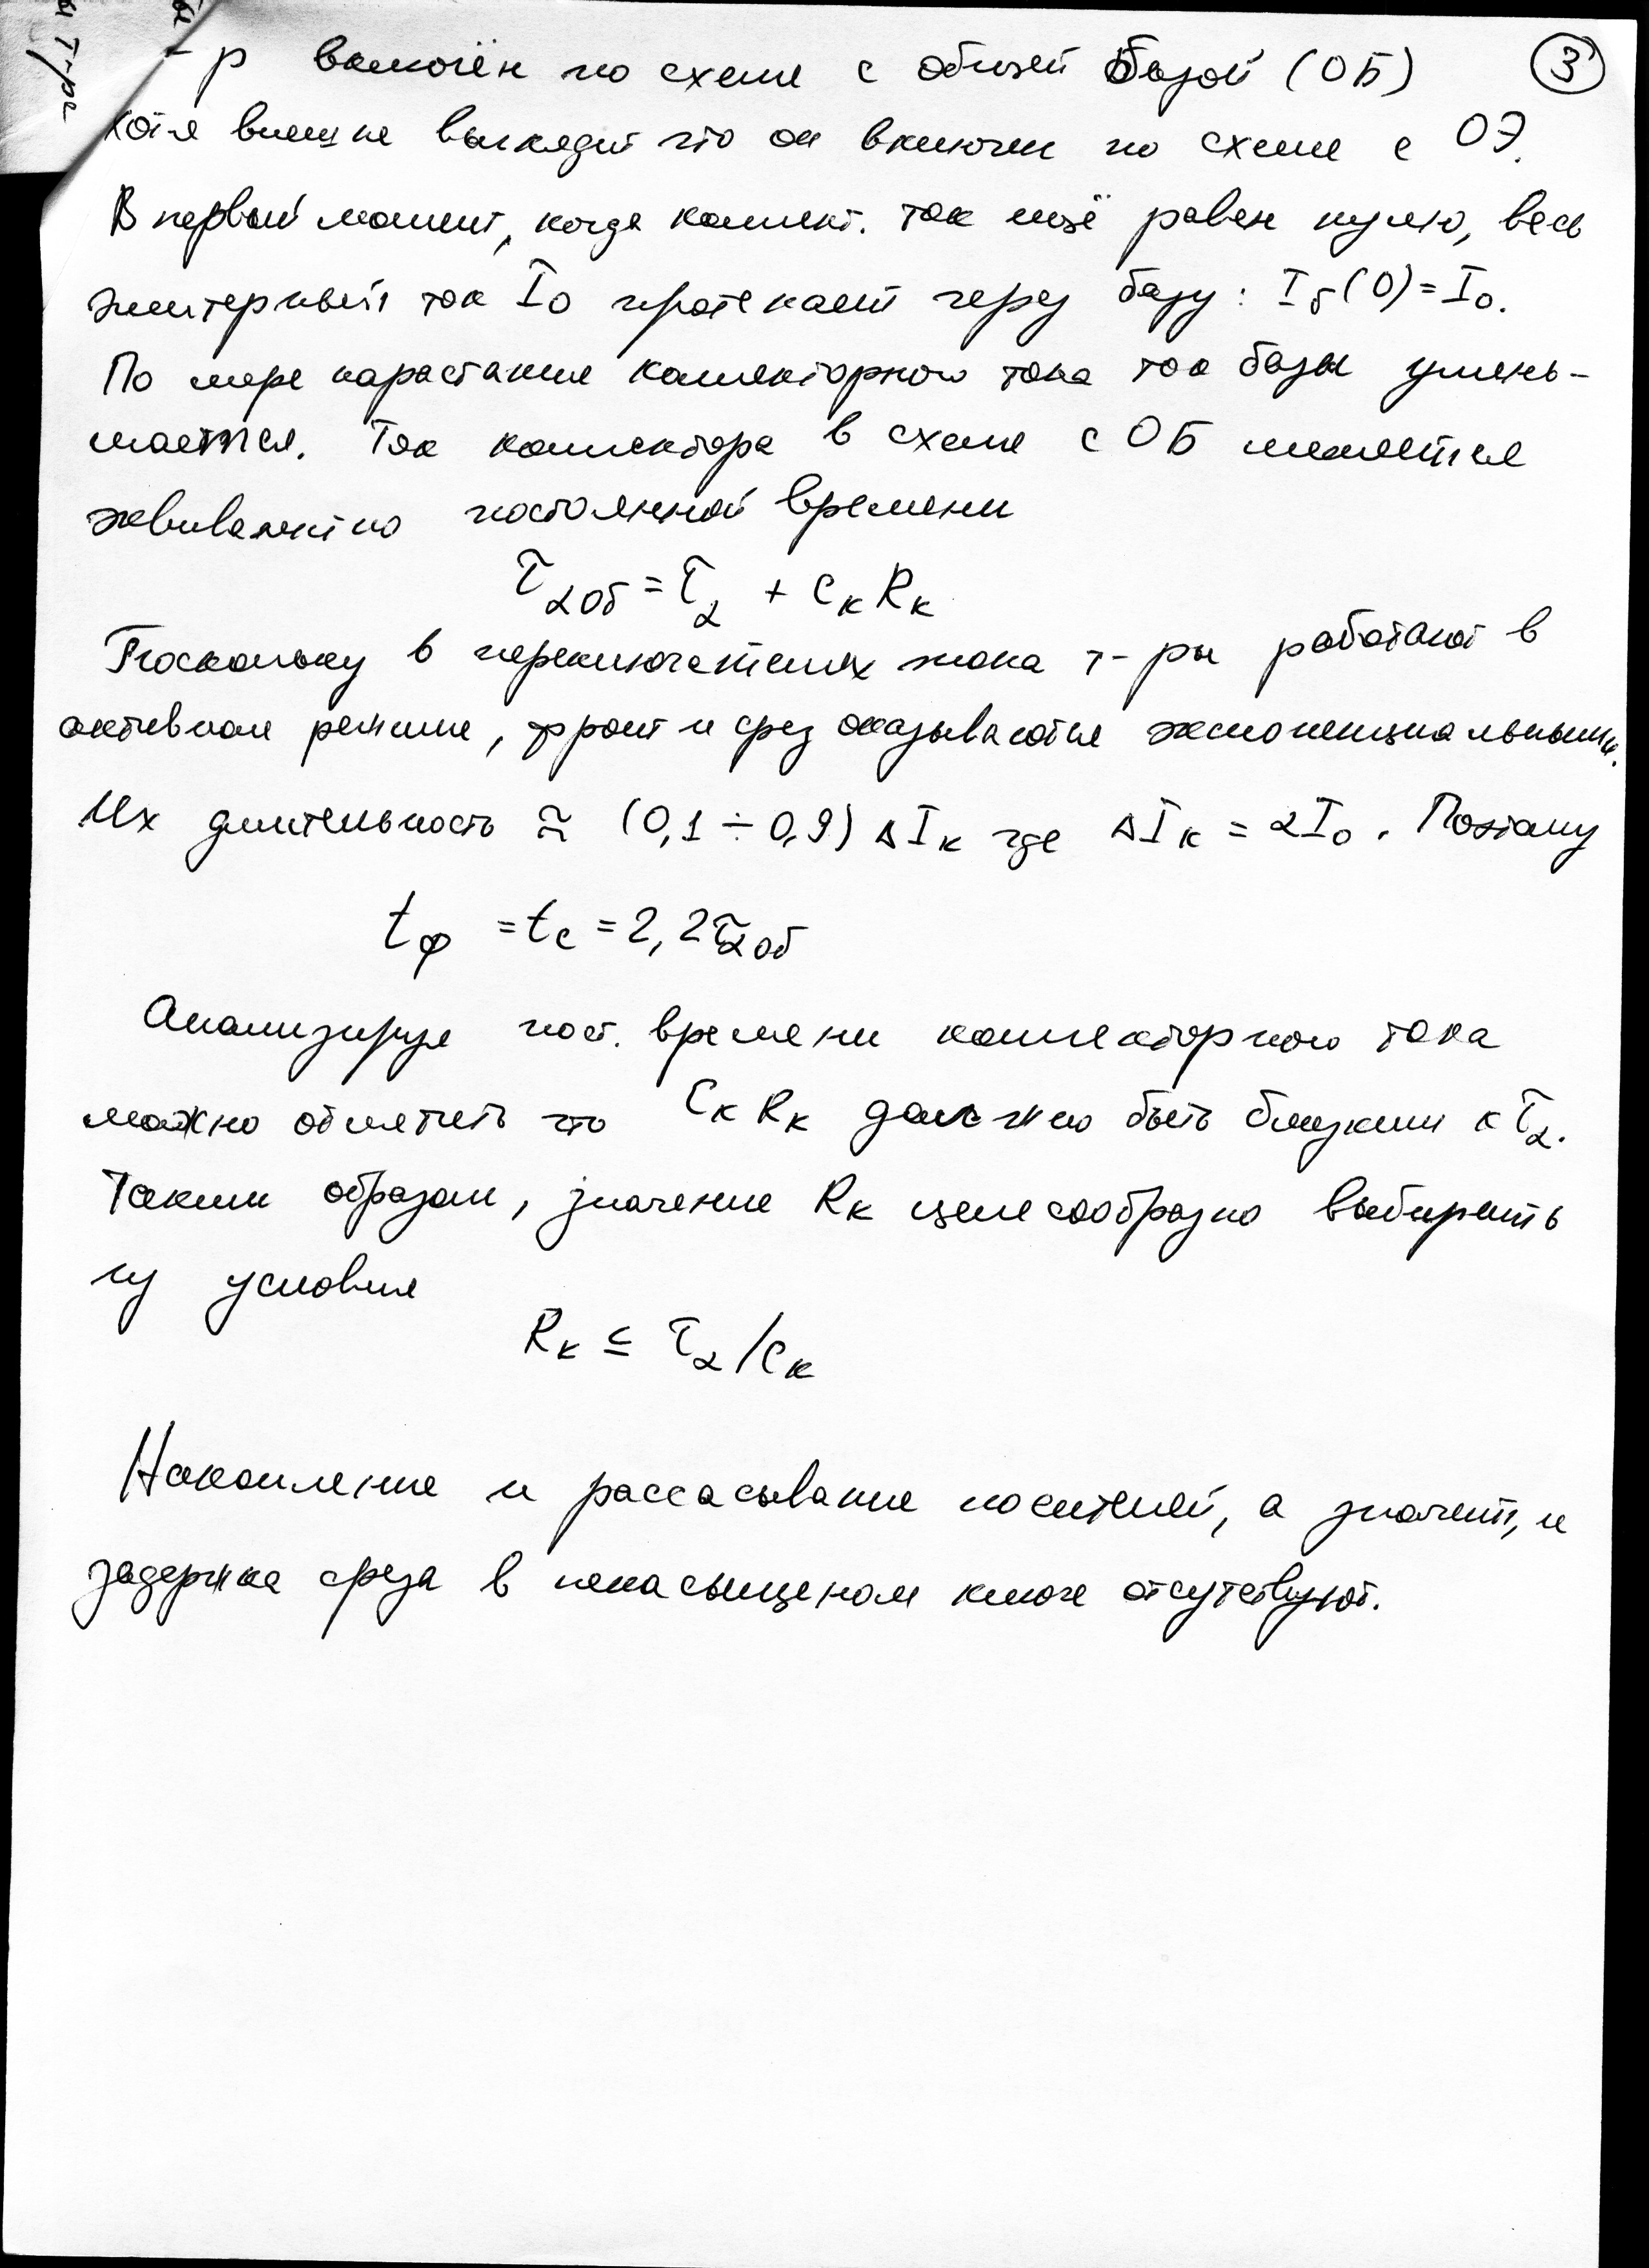 - р включён по схеме с общей базой (ОБ) 3
Хотя внешне выглядит что он включен по схеме с ОЭ.
В первый момент, когда коллект. ток ещё равен нулю, весь
эмиттерный ток I₀ протекает через базу: Iб(0)=I₀.
По мере нарастания коллекторного тока ток базы умень-
шается. Ток коллектора в схеме с ОБ меняется
эквивалентно постоянной времени
τα об = τα + Cк Rк
Поскольку в переключателях тока т-ры работают в
активном режиме, фронт и срез оказываются экспоненциальными.
Их длительность ≈ (0,1 ÷ 0,9) ΔIк где ΔIк = αI₀. Поэтому
tф = tс = 2,2τα об
Анализируя пост. времени коллекторного тока
можно отметить что Cк Rк должно быть близким к τα.
Таким образом, значение Rк целесообразно выбирать
из условия
Rк ≤ τα /Cк
Накопление и рассасывание носителей, а значит, и
задержка среза в ненасыщеном ключе отсутствуют.